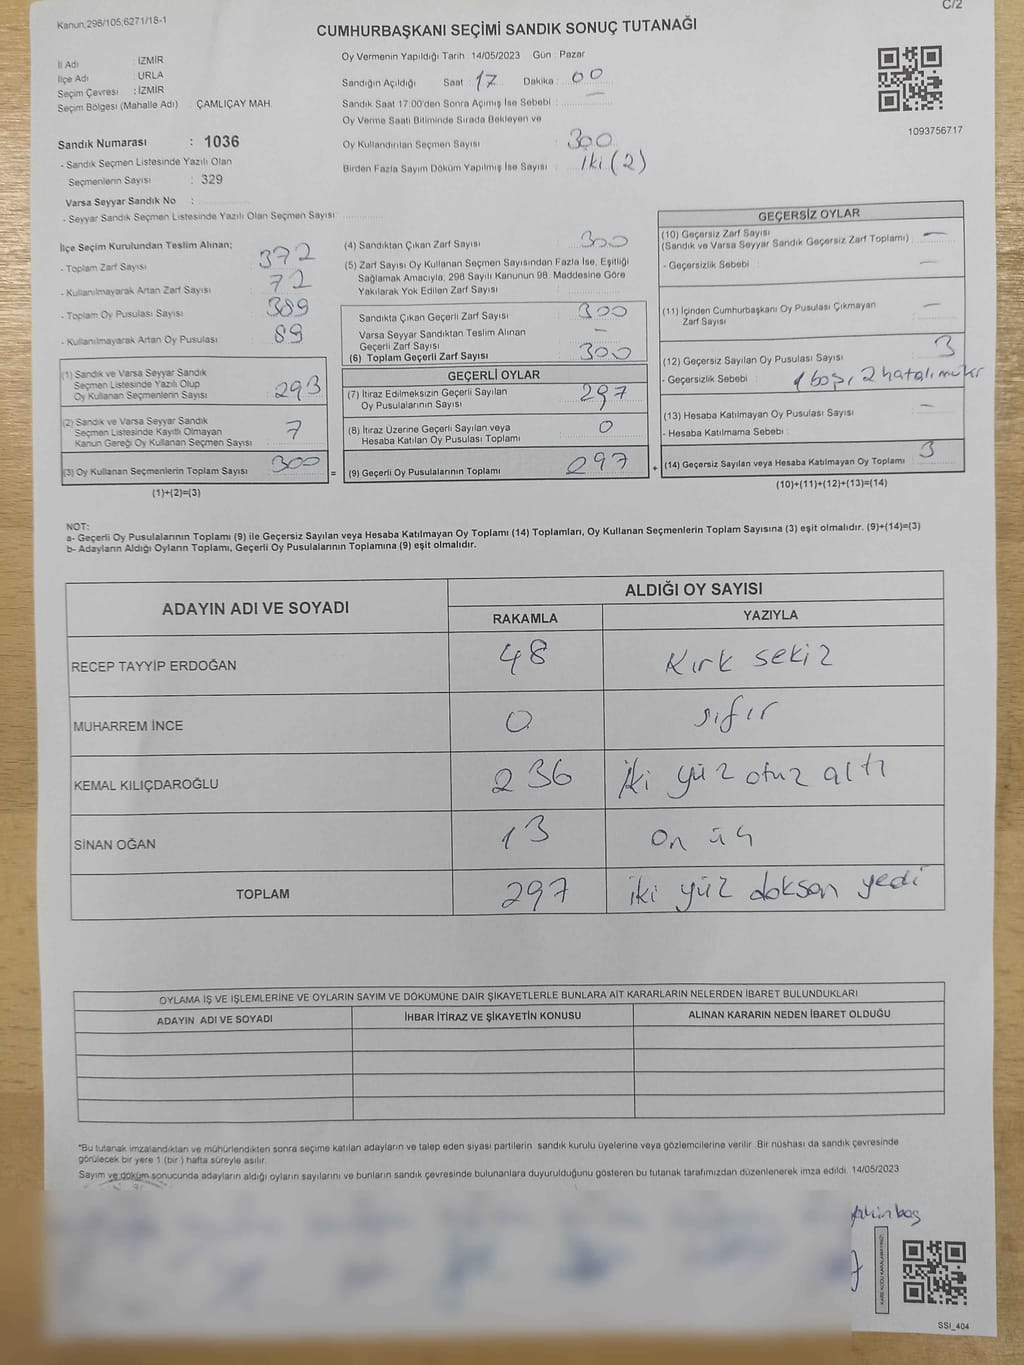 C/2
Kanun 298/105,6271/18-1
CUMHURBAŞKANI SEÇİMİ SANDIK SONUÇ TUTANAĞI
İl Adı : İZMİR
İlçe Adı : URLA
Seçim Çevresi : İZMİR
Seçim Bölgesi (Mahalle Adı) : ÇAMLIÇAY MAH.
Sandık Numarası : 1036
- Sandık Seçmen Listesinde Yazılı Olan
Seçmenlerin Sayısı : 329
Varsa Seyyar Sandık No :
- Seyyar Sandık Seçmen Listesinde Yazılı Olan Seçmen Sayısı
Oy Vermenin Yapıldığı Tarih 14/05/2023 Gün : Pazar
Sandığın Açıldığı Saat 17 Dakika : 00
Sandık Saat 17:00'den Sonra Açılmış İse Sebebi : —
Oy Verme Saati Bitiminde Sırada Bekleyen ve
Oy Kullandırılan Seçmen Sayısı : 300
Birden Fazla Sayım Döküm Yapılmış İse Sayısı : iki (2)
1093756717
İlçe Seçim Kurulundan Teslim Alınan;
- Toplam Zarf Sayısı 372
- Kullanılmayarak Artan Zarf Sayısı 72
- Toplam Oy Pusulası Sayısı 389
- Kullanılmayarak Artan Oy Pusulası 89
(1) Sandık ve Varsa Seyyar Sandık
Seçmen Listesinde Yazılı Olup
Oy Kullanan Seçmenlerin Sayısı 293
(2) Sandık ve Varsa Seyyar Sandık
Seçmen Listesinde Kayıtlı Olmayan
Kanun Gereği Oy Kullanan Seçmen Sayısı 7
(3) Oy Kullanan Seçmenlerin Toplam Sayısı 300 =
(1)+(2)=(3)
(4) Sandıktan Çıkan Zarf Sayısı 300
(5) Zarf Sayısı Oy Kullanan Seçmen Sayısından Fazla İse, Eşitliği
Sağlamak Amacıyla, 298 Sayılı Kanunun 98. Maddesine Göre
Yakılarak Yok Edilen Zarf Sayısı
Sandıkta Çıkan Geçerli Zarf Sayısı 300
Varsa Seyyar Sandıktan Teslim Alınan
Geçerli Zarf Sayısı —
(6) Toplam Geçerli Zarf Sayısı 300
GEÇERLİ OYLAR
(7) İtiraz Edilmeksizin Geçerli Sayılan
Oy Pusulalarının Sayısı 297
(8) İtiraz Üzerine Geçerli Sayılan veya
Hesaba Katılan Oy Pusulası Toplamı 0
(9) Geçerli Oy Pusulalarının Toplamı 297 +
GEÇERSİZ OYLAR
(10) Geçersiz Zarf Sayısı
(Sandık ve Varsa Seyyar Sandık Geçersiz Zarf Toplamı) —
- Geçersizlik Sebebi : —
(11) İçinden Cumhurbaşkanı Oy Pusulası Çıkmayan
Zarf Sayısı —
(12) Geçersiz Sayılan Oy Pusulası Sayısı 3
- Geçersizlik Sebebi 1 boş, 2 hatalı
(13) Hesaba Katılmayan Oy Pusulası Sayısı —
- Hesaba Katılmama Sebebi :
(14) Geçersiz Sayılan veya Hesaba Katılmayan Oy Toplamı 3
(10)+(11)+(12)+(13)=(14)
NOT:
a- Geçerli Oy Pusulalarının Toplamı (9) ile Geçersiz Sayılan veya Hesaba Katılmayan Oy Toplamı (14) Toplamları, Oy Kullanan Seçmenlerin Toplam Sayısına (3) eşit olmalıdır. (9)+(14)=(3)
b- Adayların Aldığı Oyların Toplamı, Geçerli Oy Pusulalarının Toplamına (9) eşit olmalıdır.
ADAYIN ADI VE SOYADI ALDIĞI OY SAYISI
RAKAMLA YAZIYLA
RECEP TAYYİP ERDOĞAN 48 Kırk sekiz
MUHARREM İNCE 0 sıfır
KEMAL KILIÇDAROĞLU 236 iki yüz otuz altı
SİNAN OĞAN 13 on üç
TOPLAM 297 iki yüz doksan yedi
OYLAMA İŞ VE İŞLEMLERİNE VE OYLARIN SAYIM VE DÖKÜMÜNE DAİR ŞİKAYETLERLE BUNLARA AİT KARARLARIN NELERDEN İBARET BULUNDUKLARI
ADAYIN ADI VE SOYADI İHBAR İTİRAZ VE ŞİKAYETİN KONUSU ALINAN KARARIN NEDEN İBARET OLDUĞU
*Bu tutanak imzalandıktan ve mühürlendikten sonra seçime katılan adayların ve talep eden siyasi partilerin sandık kurulu üyelerine veya gözlemcilerine verilir. Bir nüshası da sandık çevresinde
görülecek bir yere 1 (bir) hafta süreyle asılır.
Sayım ve döküm sonucunda adayların aldığı oyların sayılarını ve bunların sandık çevresinde bulunanlara duyurulduğunu gösteren bu tutanak tarafımızdan düzenlenerek imza edildi. 14/05/2023
KARE KODU KARALAMAYINIZ!
SSI_404